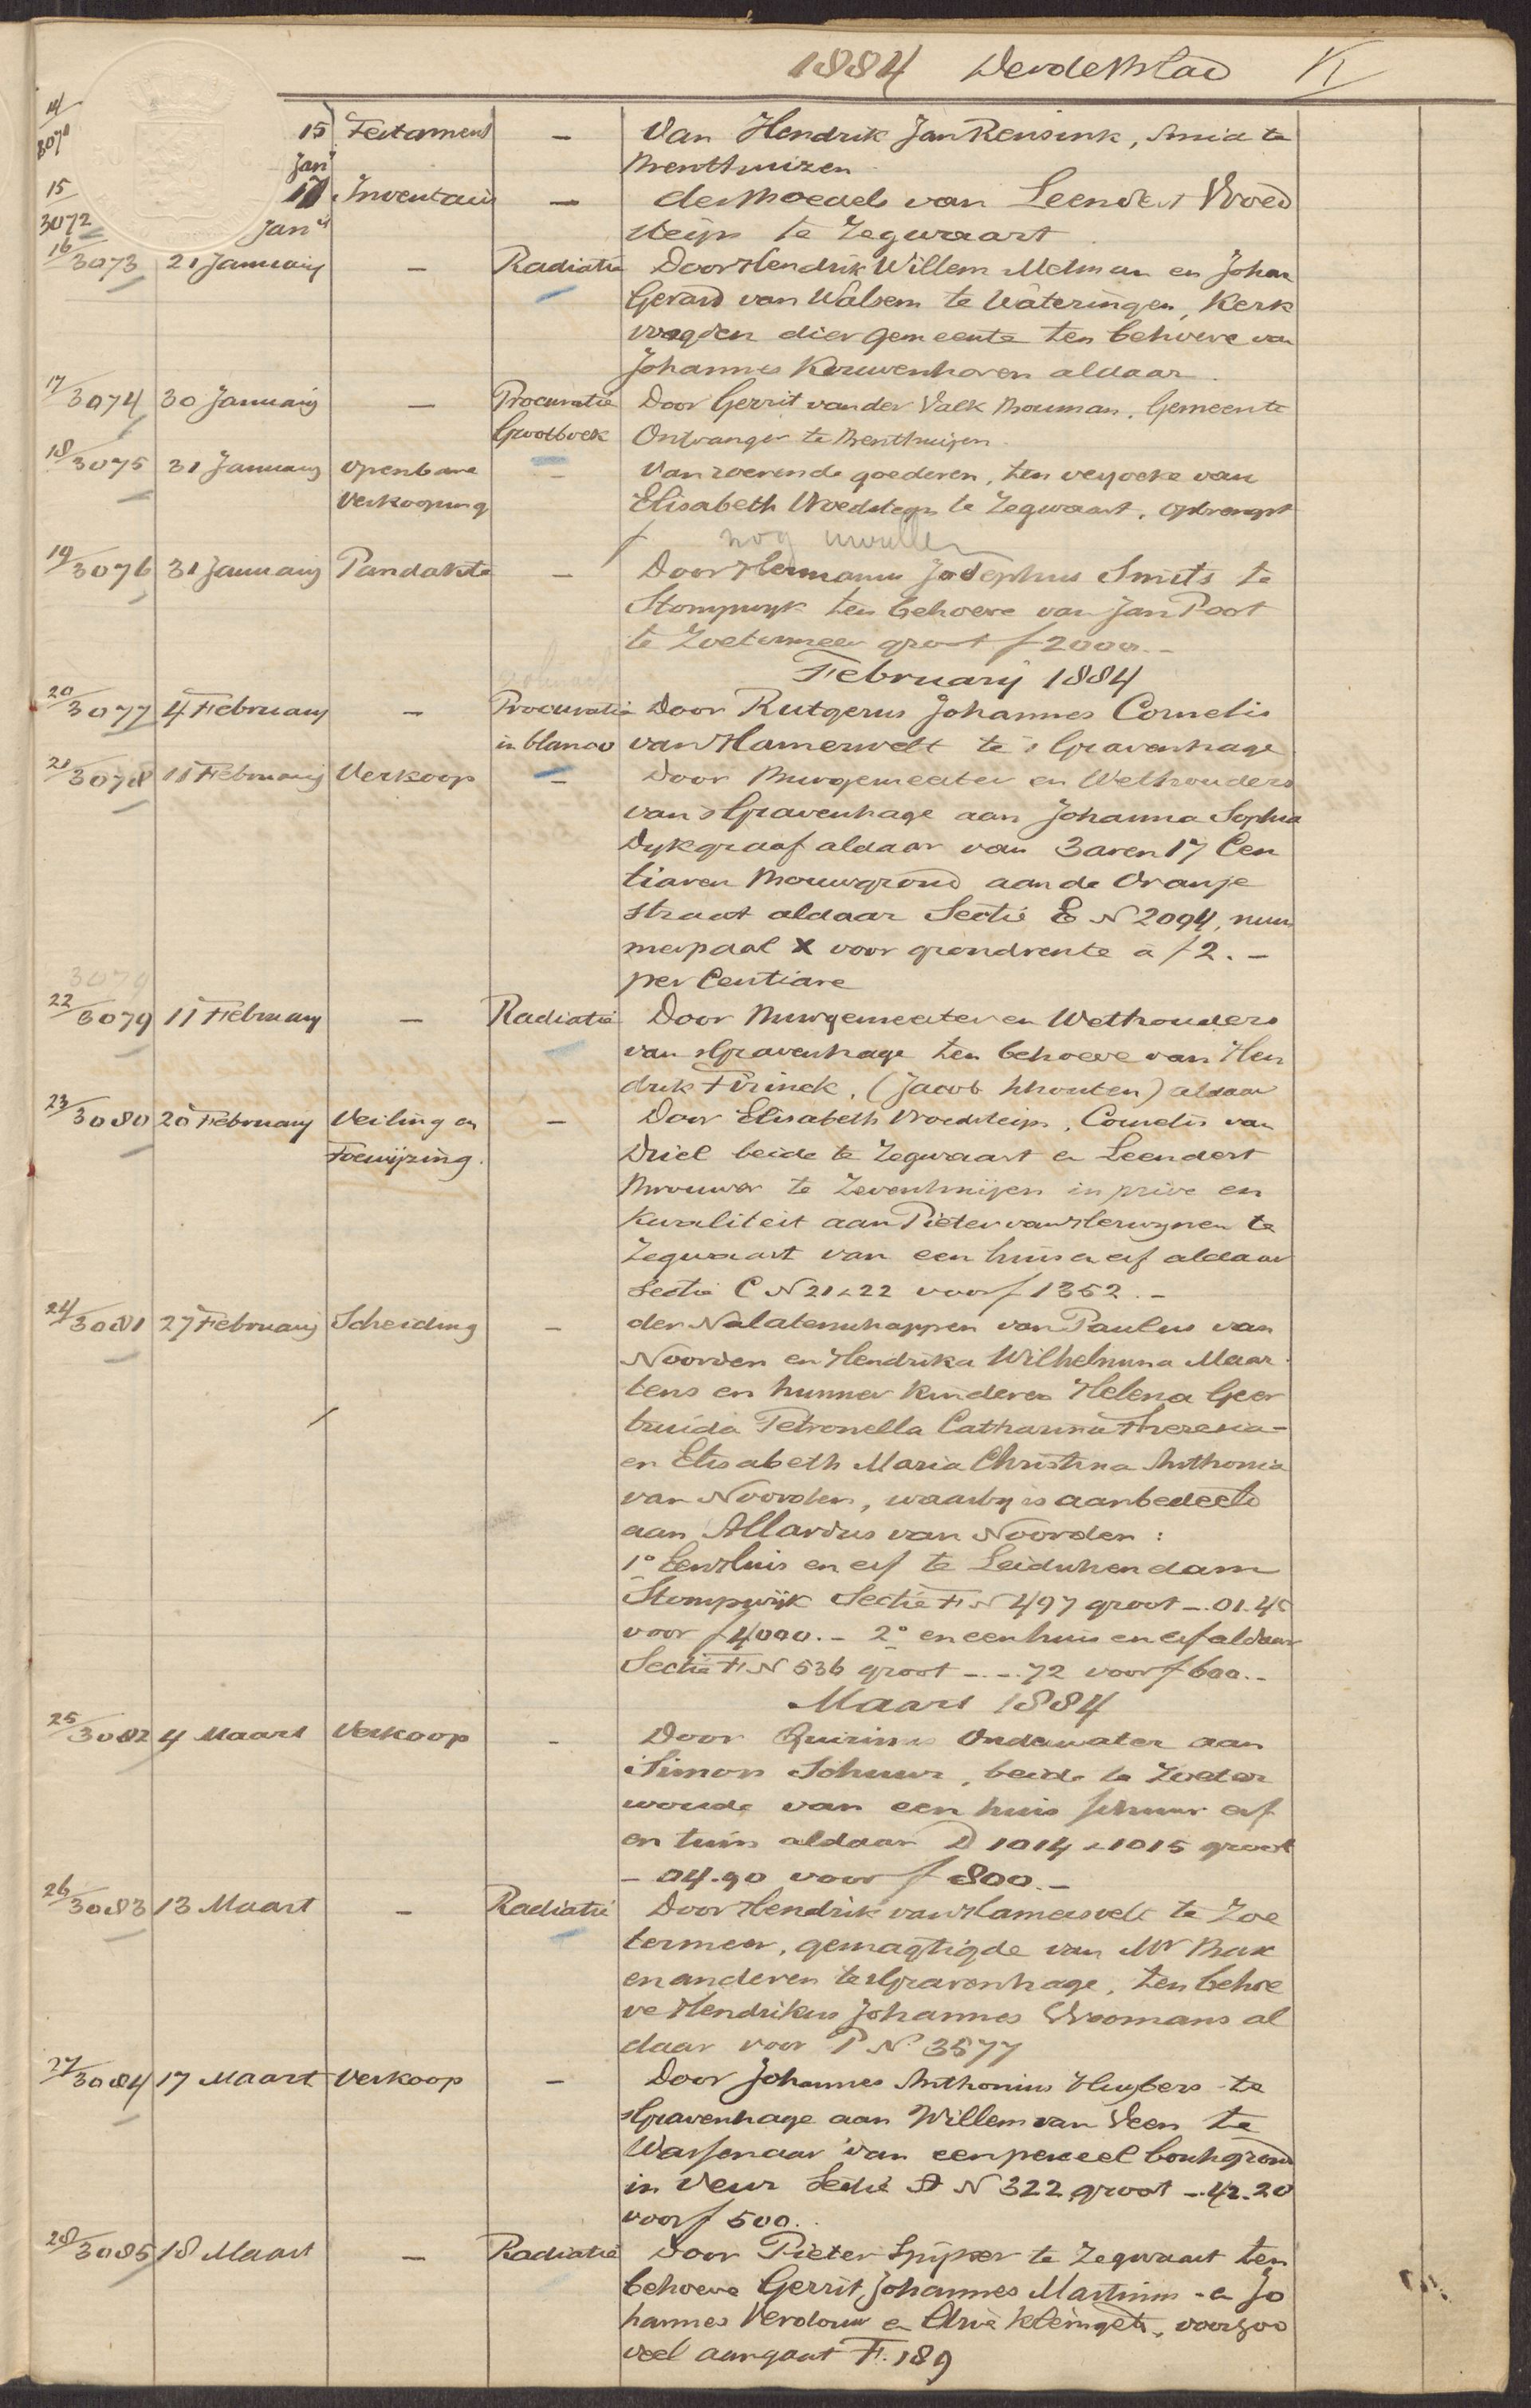 1884 Derde Blad
14/3071 15 Jan Testament — Van Hendrik Jan Rensink, Smid te
Benthuizen
15/3072 17 Jan Inventaris — des Boedels van Leendert Vroed
steijn te Zegwaart
16/3073 21 Januarij — Radiatie Door Hendrik Willem Melman en Johan
Gerard van Walsem te Wateringen, Kerk
voogden dier gemeente ten behoeve van
Johannes Kouwenhoven aldaar.
17/3074 30 Januarij — Procuratie Door Gerrit van der Valk Bouman, Gemeente
Grootboek Ontvanger te Benthuizen.
18/3075 31 Januarij Openbare — Van roerende goederen, ten verzoeke van
Verkooping Elisabeth Vroedsteyn te Zegwaart, opbrengst
f nog invullen
19/3076 31 Januarij Pandakte — Door Hermanus Josephus Smits te
Stompwyk ten behoeve van Jan Poot
te Zoetermeer groot f 2000.-
February 1884
20/3077 4 February — Procuratie Door Rutgerus Johannes Cornelis
in blanco van Hamersvelt te 's Gravenhage
21/3078 11 February Verkoop — Door Burgemeester en Wethouders
van 's Gravenhage aan Johanna Sophia
Dykgraaf aldaar van 3 aren 17 Cen
tiaren Bouwgrond aan de Oranje
straat aldaar Sectie E N 2094, num
merpaal X voor grondrente a f 2.-
per Centiare
3079
22/3079 11 February — Radiatie Door Burgemeester en Wethouders
van 's Gravenhage ten behoeve van Hen
drik Firinck, (Jacob Schouten) aldaar
23/3080 20 February Veiling en — Door Elisabeth Vroedsteijn, Cornelis van
Toewijzing. Driel beide te Zegwaart en Leendert
Brouwer te Zevenhuijzen in prive en
Kwaliteit aan Pieter van Herwynen te
Zegwaart van een huis en erf aldaar
Sectie C N 21 & 22 voor f 1352.-
24/3081 27 February Scheiding — der Nalatenschappen van Paulus van
Noorden en Hendrika Wilhelmina Maar
tens en hunner kinderen Helena Geer
truida Petronella Catharina Theresia-
en Elisabeth Maria Christina Anthonia
van Noorden, waarby is aanbedeeld
aan Allardus van Noorden:
1° Een Huis en erf te Leidschendam
Stompwijk Sectie F N 497 groot -.01.45
voor f 4000.- 2° en een huis en erf aldaar
Sectie F N 536 groot -.-.72 voor f 600.-
Maart 1884
25/3082 4 Maart Verkoop — Door Quirinus Oudewater aan
Simon Schuur, beide te Zoeter
woude van een huis schuur erf
en tuin aldaar D 1014 & 1015 groot
- 04.90 voor f 800.-
26/3083 13 Maart — Radiatie Door Hendrik van Hamersvelt te Zoe
termeer, gemagtigde van Mr Bax
en anderen te 's Gravenhage, ten behoe
ve Hendrikus Johannes Vroomans al
daar voor P N° 3577
27/3084 17 Maart Verkoop — Door Johannes Anthonius Huybers te
's Gravenhage aan Willem van Veen te
Wassenaar van een perceel bouwgrond
in Veur Sectie A N 322 groot -.42.20
voor f 500.
28/3085 18 Maart — Radiatie Door Pieter Spijker te Zegwaart ten
behoeve Gerrit, Johannes Martinus - en Jo
hannes Verdouw en Arie Kleingeld, voorzoo
veel aangaat F. 189